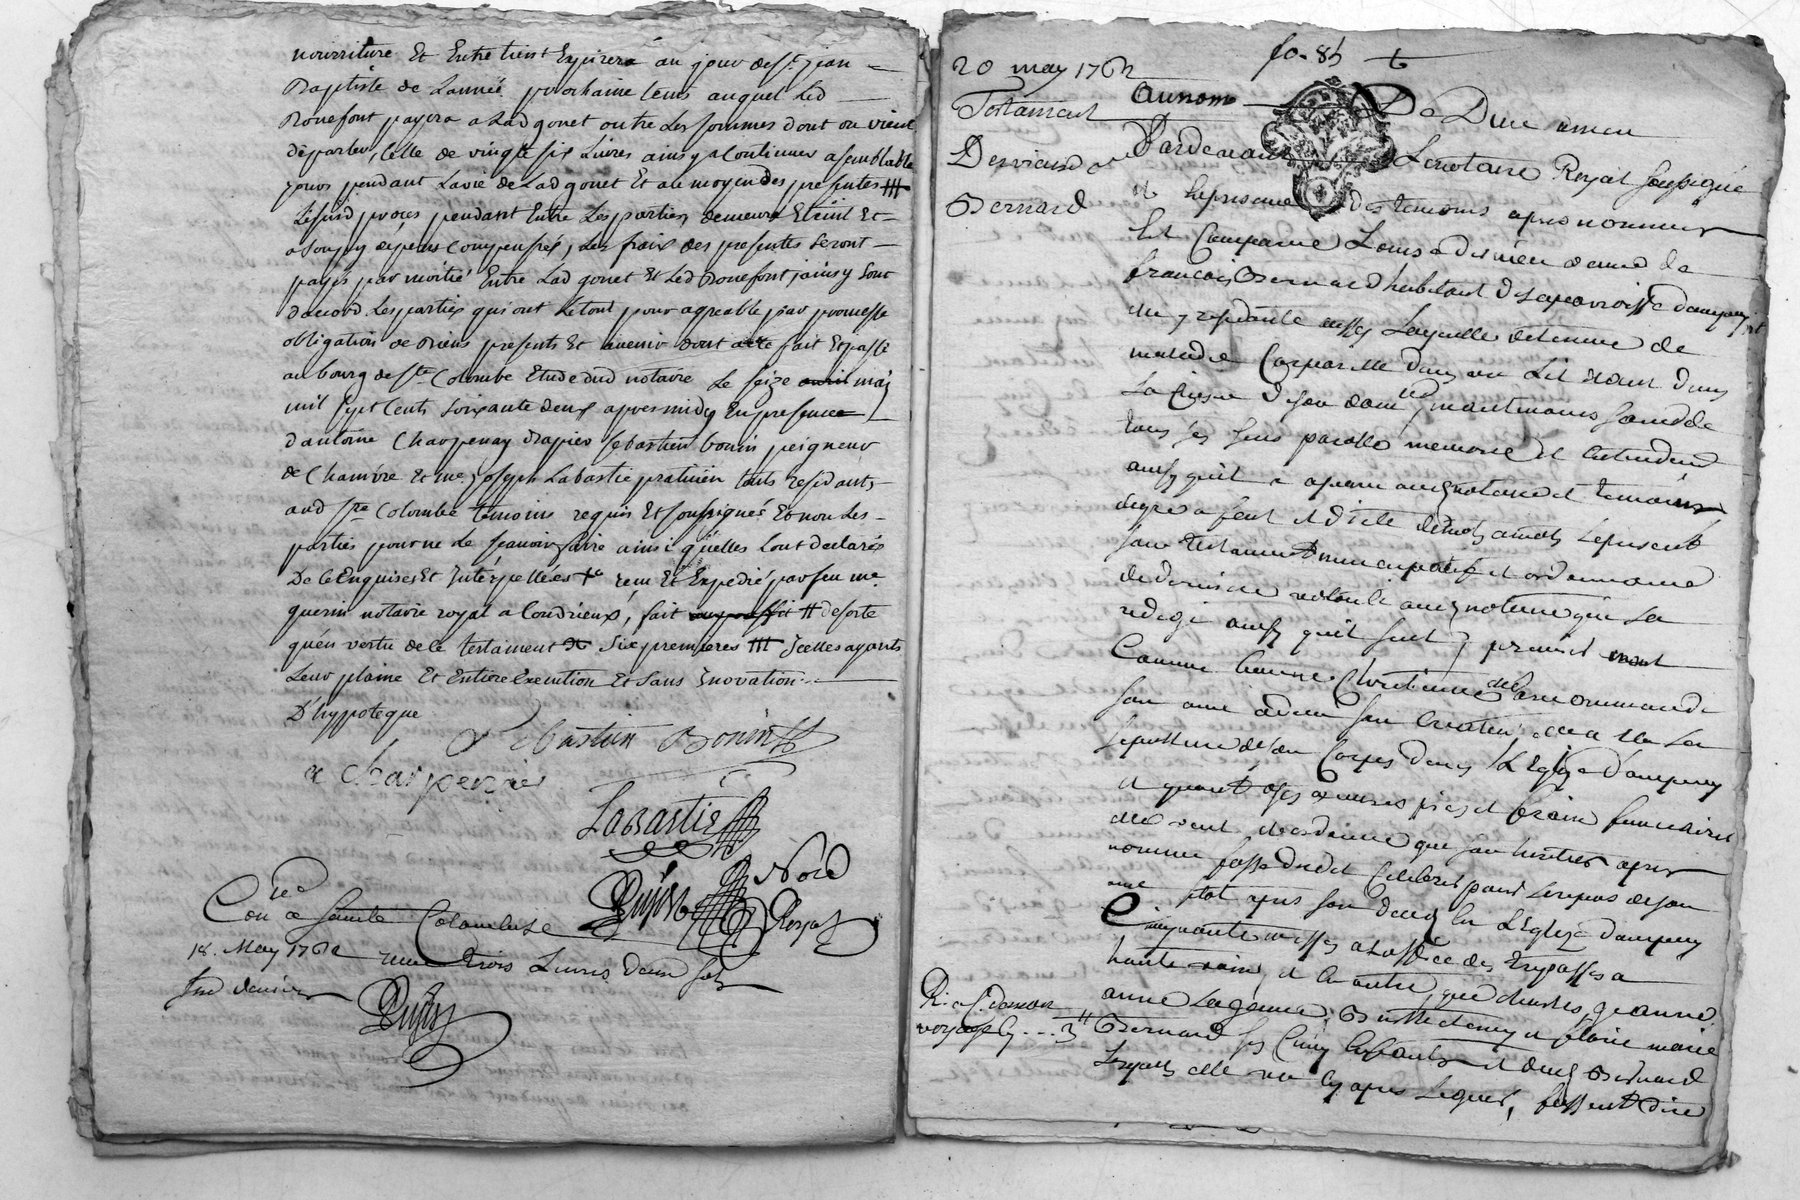 nourriture Et Entretient Expirera au jour de St jean
Baptiste de Lanneé prochaine tems auquel Led
Bonefont payera a Lad gonet outre Les sommes dont on vient
de parler, Celle de vingt six Livres ainsy a Continuer a semblable
jours pendant Lavie de Lad gonet Et au moyen des presentes
Le susd proces pendant Entre Les parties demeure Eteint Et
assoupy depens Compensés, Les fraix des presentes seront
payés par moitié Entre Lad gonet Et Led Bonefont, ainsy sont
dacord Les parties qui ont Le tout pour agreable par promesse
obligation de Biens presents Et avenir dont acte fait Et passé
au bourg de Ste Colombe Etude dud notaire Le seize mai
mil sept Cents soixante deux apres midy En presence
dantoine Charpenay drapier sebastien bonin peigneur
de Chanvre Et me joseph Labastie praticien touts residants
aud Ste Colombe temoins requis Et soussignés Et non Les
parties pour ne Le sçavoir faire ainsi qu'elles L'ont declarés
De ce Enquises Et Interpellées + reçu Et Expedié par feu me
guerin notaire royal a Condrieux, fait # desorte
qu'en vertu de ce testament six premieres ### Icelles ayants
Leur plaine Et Entiere Execution Et sans Inovation
D'hypoteque
Sebastien Bonin
a Charpenaÿ
Labastie
Dujast Nore Royal
Conlé a Sainte Colombe le
18. May 1762 reçu trois Livres deux sols
six deniers
Dujast
20 may 1762
Testament
Bernard
fo. 85
Au nom De Dieu amen
Pardevant Le notaire Royal soussigné
Et En presence des temoins apres nommés
Est Comparue
françois Bernard habitant de la parroisse dampuis et
y residante Laquelle detenue de
maladie Corporelle dans un Lit Etant dans
La Cuisine de son domicile, maintenant saine de
tous ses sens parolle memoire et Entendement
ainsy quil a aparu aud notaire et temoins
degré a fait et dicté demots amots Le present
son testament nuncupatif et ordonnance
de derniere volonté aud notaire qui La
redigé ainsy quil suit, premierement
Comme bonne Chretienne elle a recommandé
son ame a dieu son Createur, elle a élu La
sepulture de son Corps dans L'Eglise d'ampuis
et quant a ses œuvres pies et frais funeraires
elle veut et ordonne que son heritier apres
nommé fasse dire et Celebrer pour Le repos de son
ame sitot apres son deces En L'Eglise d'ampuis
Cinquante messes a l'office des trepassés a
haute voix, et En outre que
anne
Bernard ses Cinq Enfants et dud Bernard
Lesquels elle va Cy apres Leguer, fassent dire